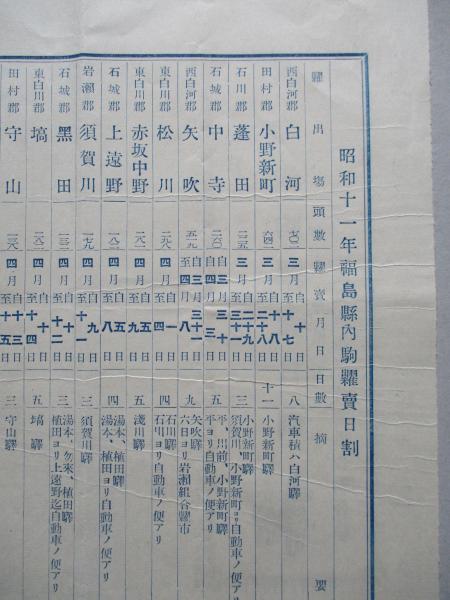 昭和十一年福島縣內駒糶賣日割
糶出場 頭數 糶賣月日 日數 摘要
西白河郡 白河 三月 自十日 至十七日 八 汽車積ハ白河驛
田村郡 小野新町 三月 自十八日 至二十八日 十一 小野新町驛
石川郡 蓬田 三月 自二十九日 至三十一日 三 小野新町驛 須賀川、小野新町ヨリ自動車ノ便アリ
石城郡 中寺 四月 自 至 三 平、川前、小野新町驛 平ヨリ自動車ノ便アリ
西白河郡 矢吹 自三月三十一日 至四月八日 九 矢吹驛 六日ヨリ岩瀨組合糶市
東白川郡 松川 四月 自一日 至四日 四 石川驛 石川ヨリ自動車ノ便アリ
東白川郡 赤坂中野 四月 自五日 至九日 五 淺川驛
石城郡 上遠野 四月 自五日 至八日 四 湯本、植田驛 湯本、植田ヨリ自動車ノ便アリ
岩瀨郡 須賀川 四月 自九日 至十一日 三 須賀川驛
石城郡 黑田 四月 自十日 至十二日 三 湯本、勿來、植田驛 植田ヨリ上遠野迄自動車ノ便アリ
東白川郡 塙 四月 自十日 至十四日 五 塙驛
田村郡 守山 四月 自十三日 至十五日 三 守山驛